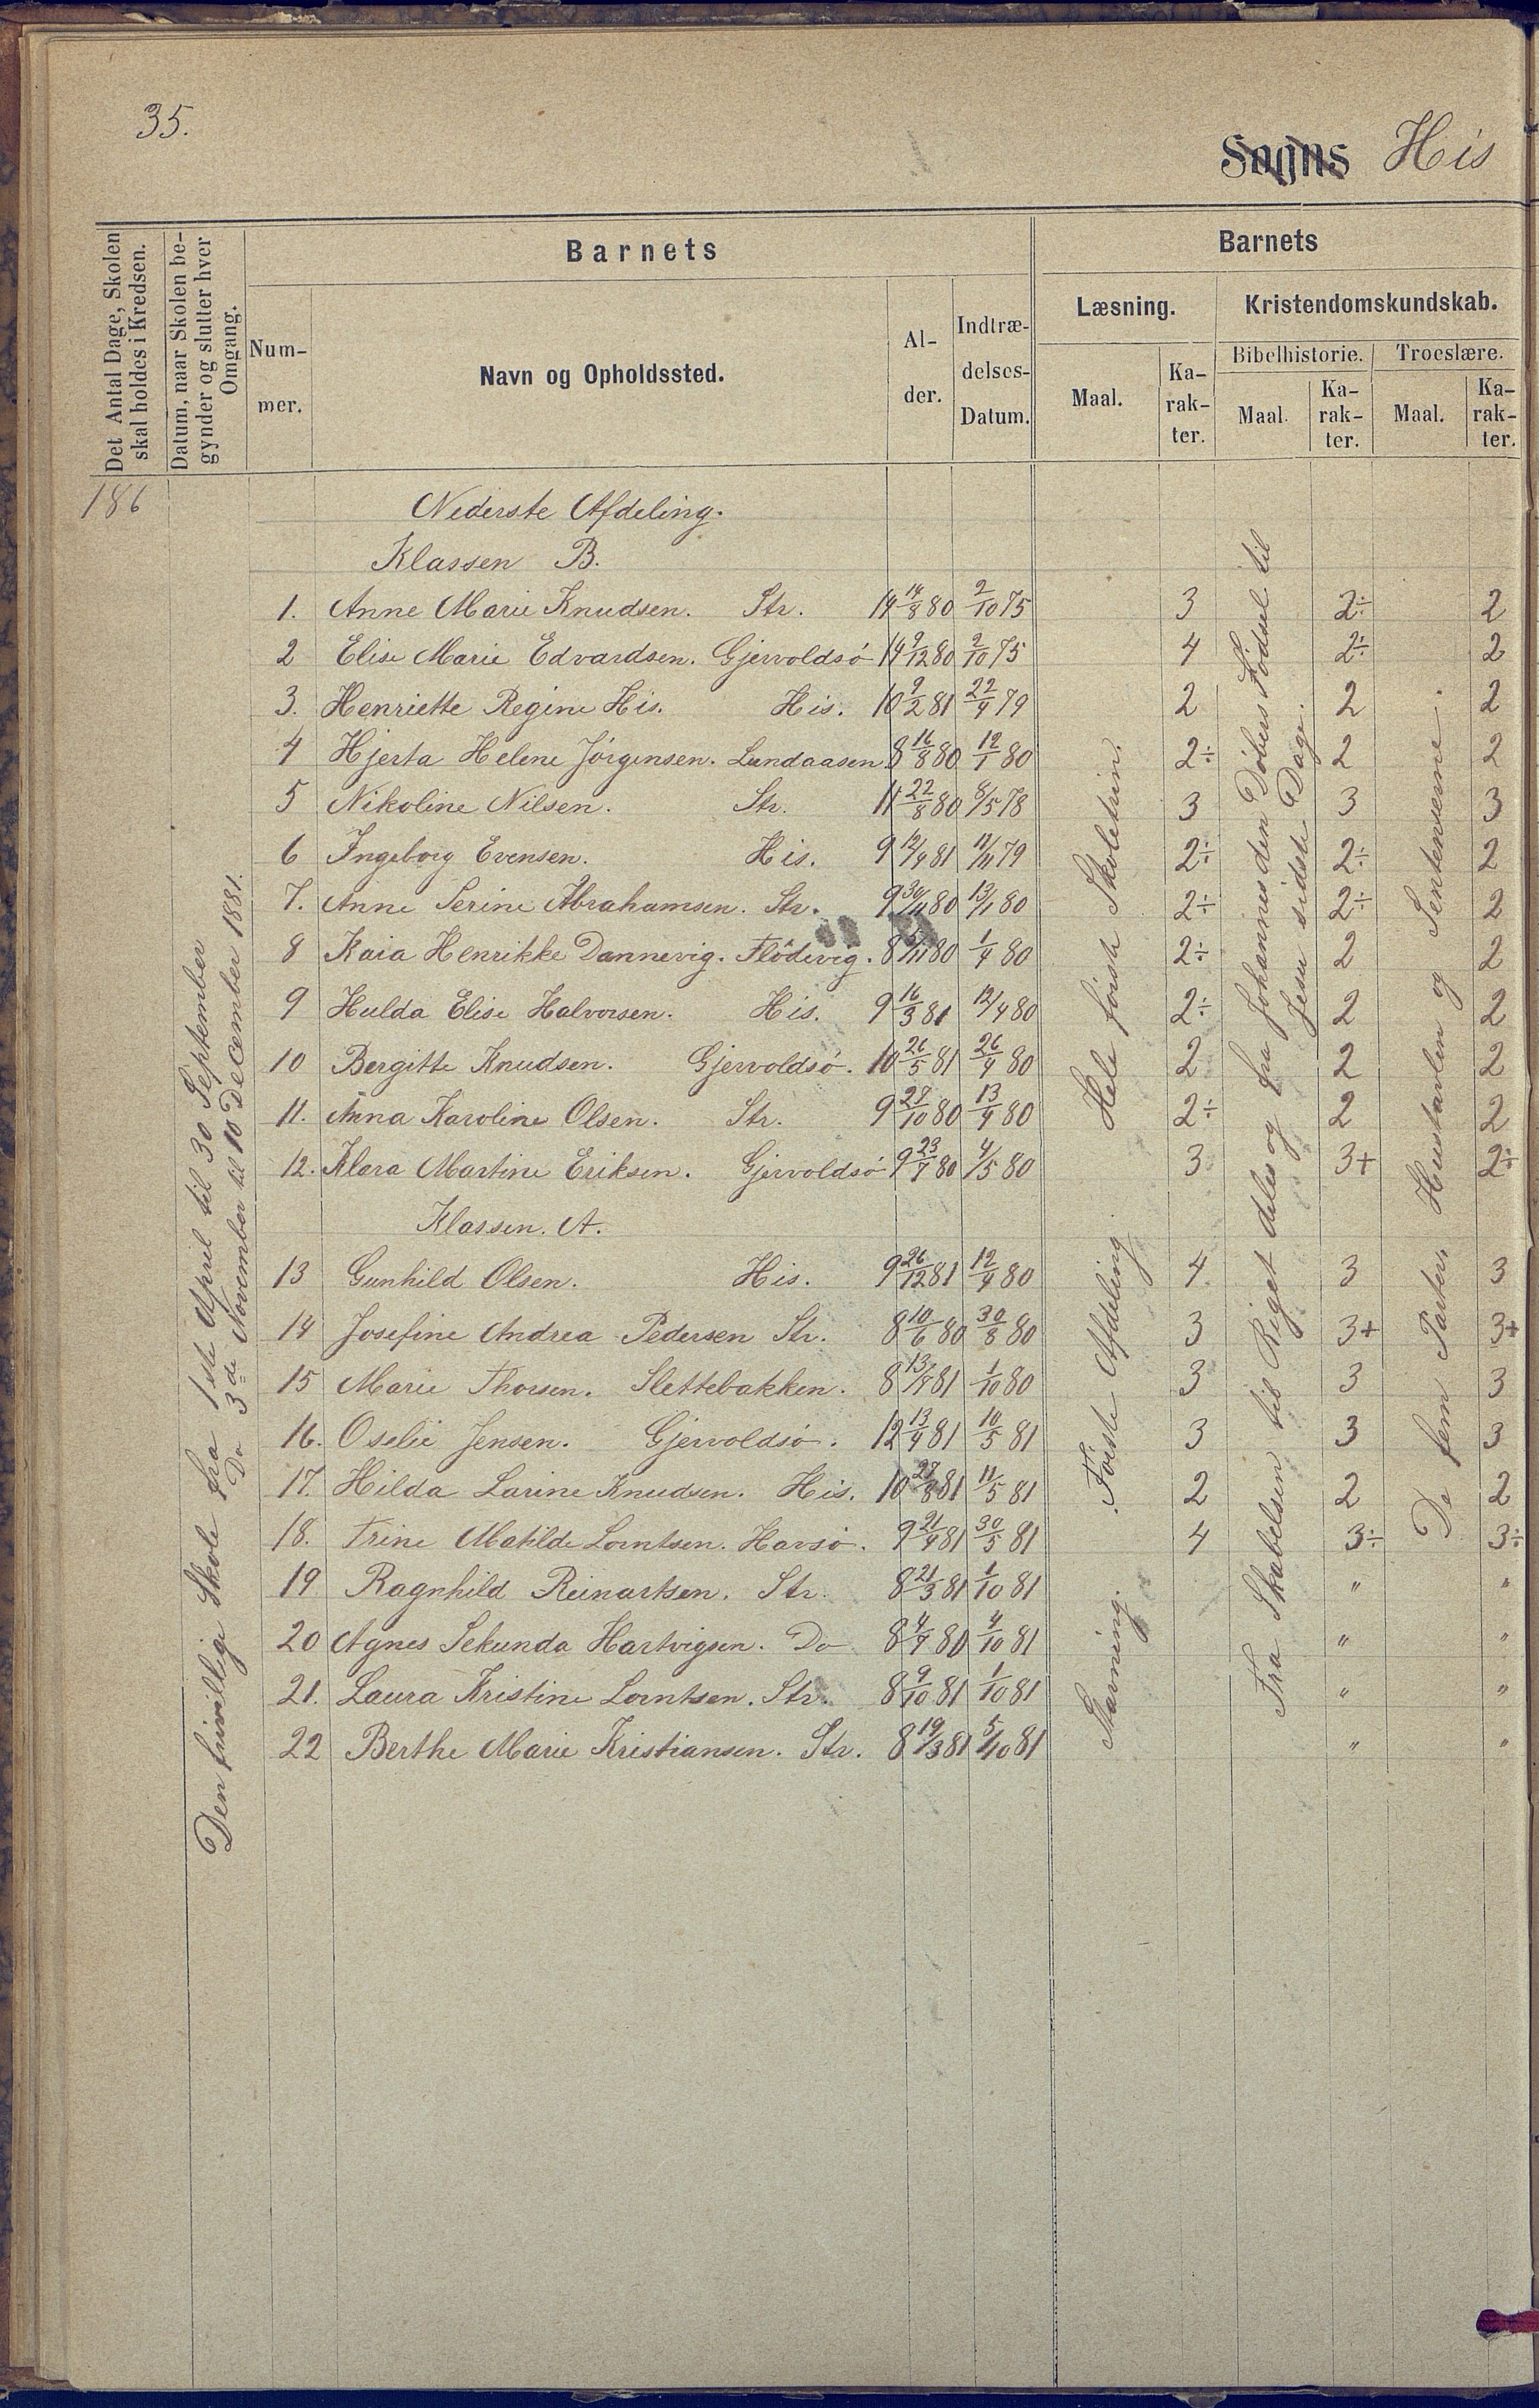 35.
Sogns His
Det Antal Dage, Skolen
skal holdes i Kredsen.
Datum, naar Skolen be-
gynder og slutter hver
Omgang.
Barnets
Num-
mer.
Navn og Opholdssted.
Al-
der.
Indtræ-
delses-
Datum.
Barnets
Læsning.
Maal.
Ka-
rak-
ter.
Kristendomskundskab.
Bibelhistorie.
Maal.
Ka-
rak-
ter.
Troeslære.
Maal.
Ka-
rak-
ter.
186
Den frivillige Skole fra 1ste April til 30 September
Do 3de November til 10 December 1881.
Nederste Afdeling.
Klassen B.
1. Anne Marie Knudsen. Str. 14 14/8 80 2/10 75 3 2÷ 2
2 Elise Marie Edvardsen. Gjervoldsö 14 9/12 80 2/10 75 4 2÷ 2
3. Henriette Regine His. His. 10 9/2 81 22/4 79 2 2 2
4 Hjerta Helene Jörgensen. Lundaasen 8 16/8 80 12/1 80 2÷ 2 2
5 Nikoline Nilsen. Str. 11 22/8 80 8/5 78 3 3 3
6 Ingeborg Evensen. His. 9 12/4 81 12/11 79 2÷ 2÷ 2
7. Anne Serine Abrahamsen. Str. 9 30/11 80 13/1 80 2÷ 2÷ 2
8 Kaia Henrikke Dannevig. Flödevig. 8 5/11 80 1/4 80 2÷ 2 2
9 Hulda Elise Halvorsen. His. 9 16/3 81 12/4 80 2÷ 2 2
10 Bergitte Knudsen. Gjervoldsö. 10 26/5 81 26/4 80 2 2 2
11. Anna Karoline Olsen. Str. 9 27/10 80 13/4 80 2÷ 2 2
12. Klara Martine Eriksen. Gjervoldsö 9 23/7 80 4/5 80 3 3+ 2÷
Klassen. A.
13 Gunhild Olsen. His. 9 26/12 81 12/4 80 4 3 3
14 Josefine Andrea Pedersen Str. 8 10/6 80 30/8 80 3 3+ 3+
15 Marie Thorsen. Slettebakken. 8 13/4 81 1/10 80 3 3 3
16. Oselie Jensen. Gjervoldsö. 12 13/4 81 10/5 81 3 3 3
17. Hilda Larine Knudsen. His. 10 27/8 81 11/5 81 2 2 2
18. Trine Matilde Lorntsen. Havsö. 9 21/4 81 30/5 81 4 3÷ 3÷
19 Ragnhild Reinartsen. Str. 8 21/3 81 1/10 81 " "
20 Agnes Sekunda Hartvigsen. Do 8 4/7 81 4/10 81 " "
21. Laura Kristine Lorntsen. Str. 8 9/10 81 1/10 81 " "
22 Berthe Marie Kristiansen. Str. 8 19/3 81 5/10 81 " "
Hele förste Skoletrin.
Förste Afdeling.
Stavning.
Fra Skabelsen til Riget deles og fra Johannes den Döbers Födsel til
Jesu sidste Dage.
De fem Parter, Hustavlen og Sentenserne.